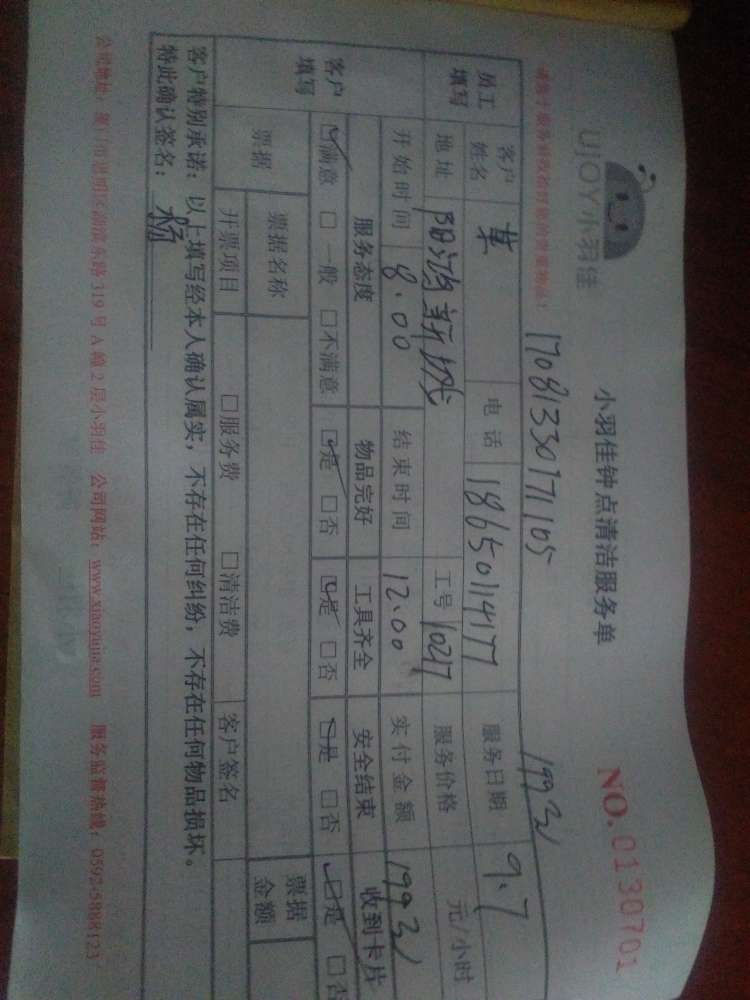 UjOY小羽佳
小羽佳钟点清洁服务单
NO.0130701
1708133017105
员工填写
客户姓名 电话 18650114177 服务日期 9.7
地址 阳鸿新城 工号 10217 服务价格 元/小时
开始时间 8.00 结束时间 12.00 实付金额
客户填写
服务态度 物品完好 工具齐全 安全结束 收到卡片
☑满意 □一般 □不满意 ☑是 □否 ☑是 □否 ☑是 □否 ☑是 □否
票据 票据名称 票据金额
开票项目 □服务费 □清洁费 客户签名
客户特别承诺：以上填写经本人确认属实，不存在任何纠纷，不存在任何物品损坏。
特此确认签名：杨
公司地址：厦门市思明区湖滨东路319号A幢2层小羽佳 公司网站：www.xiaoyujia.com 服务监督热线：0592-5888123